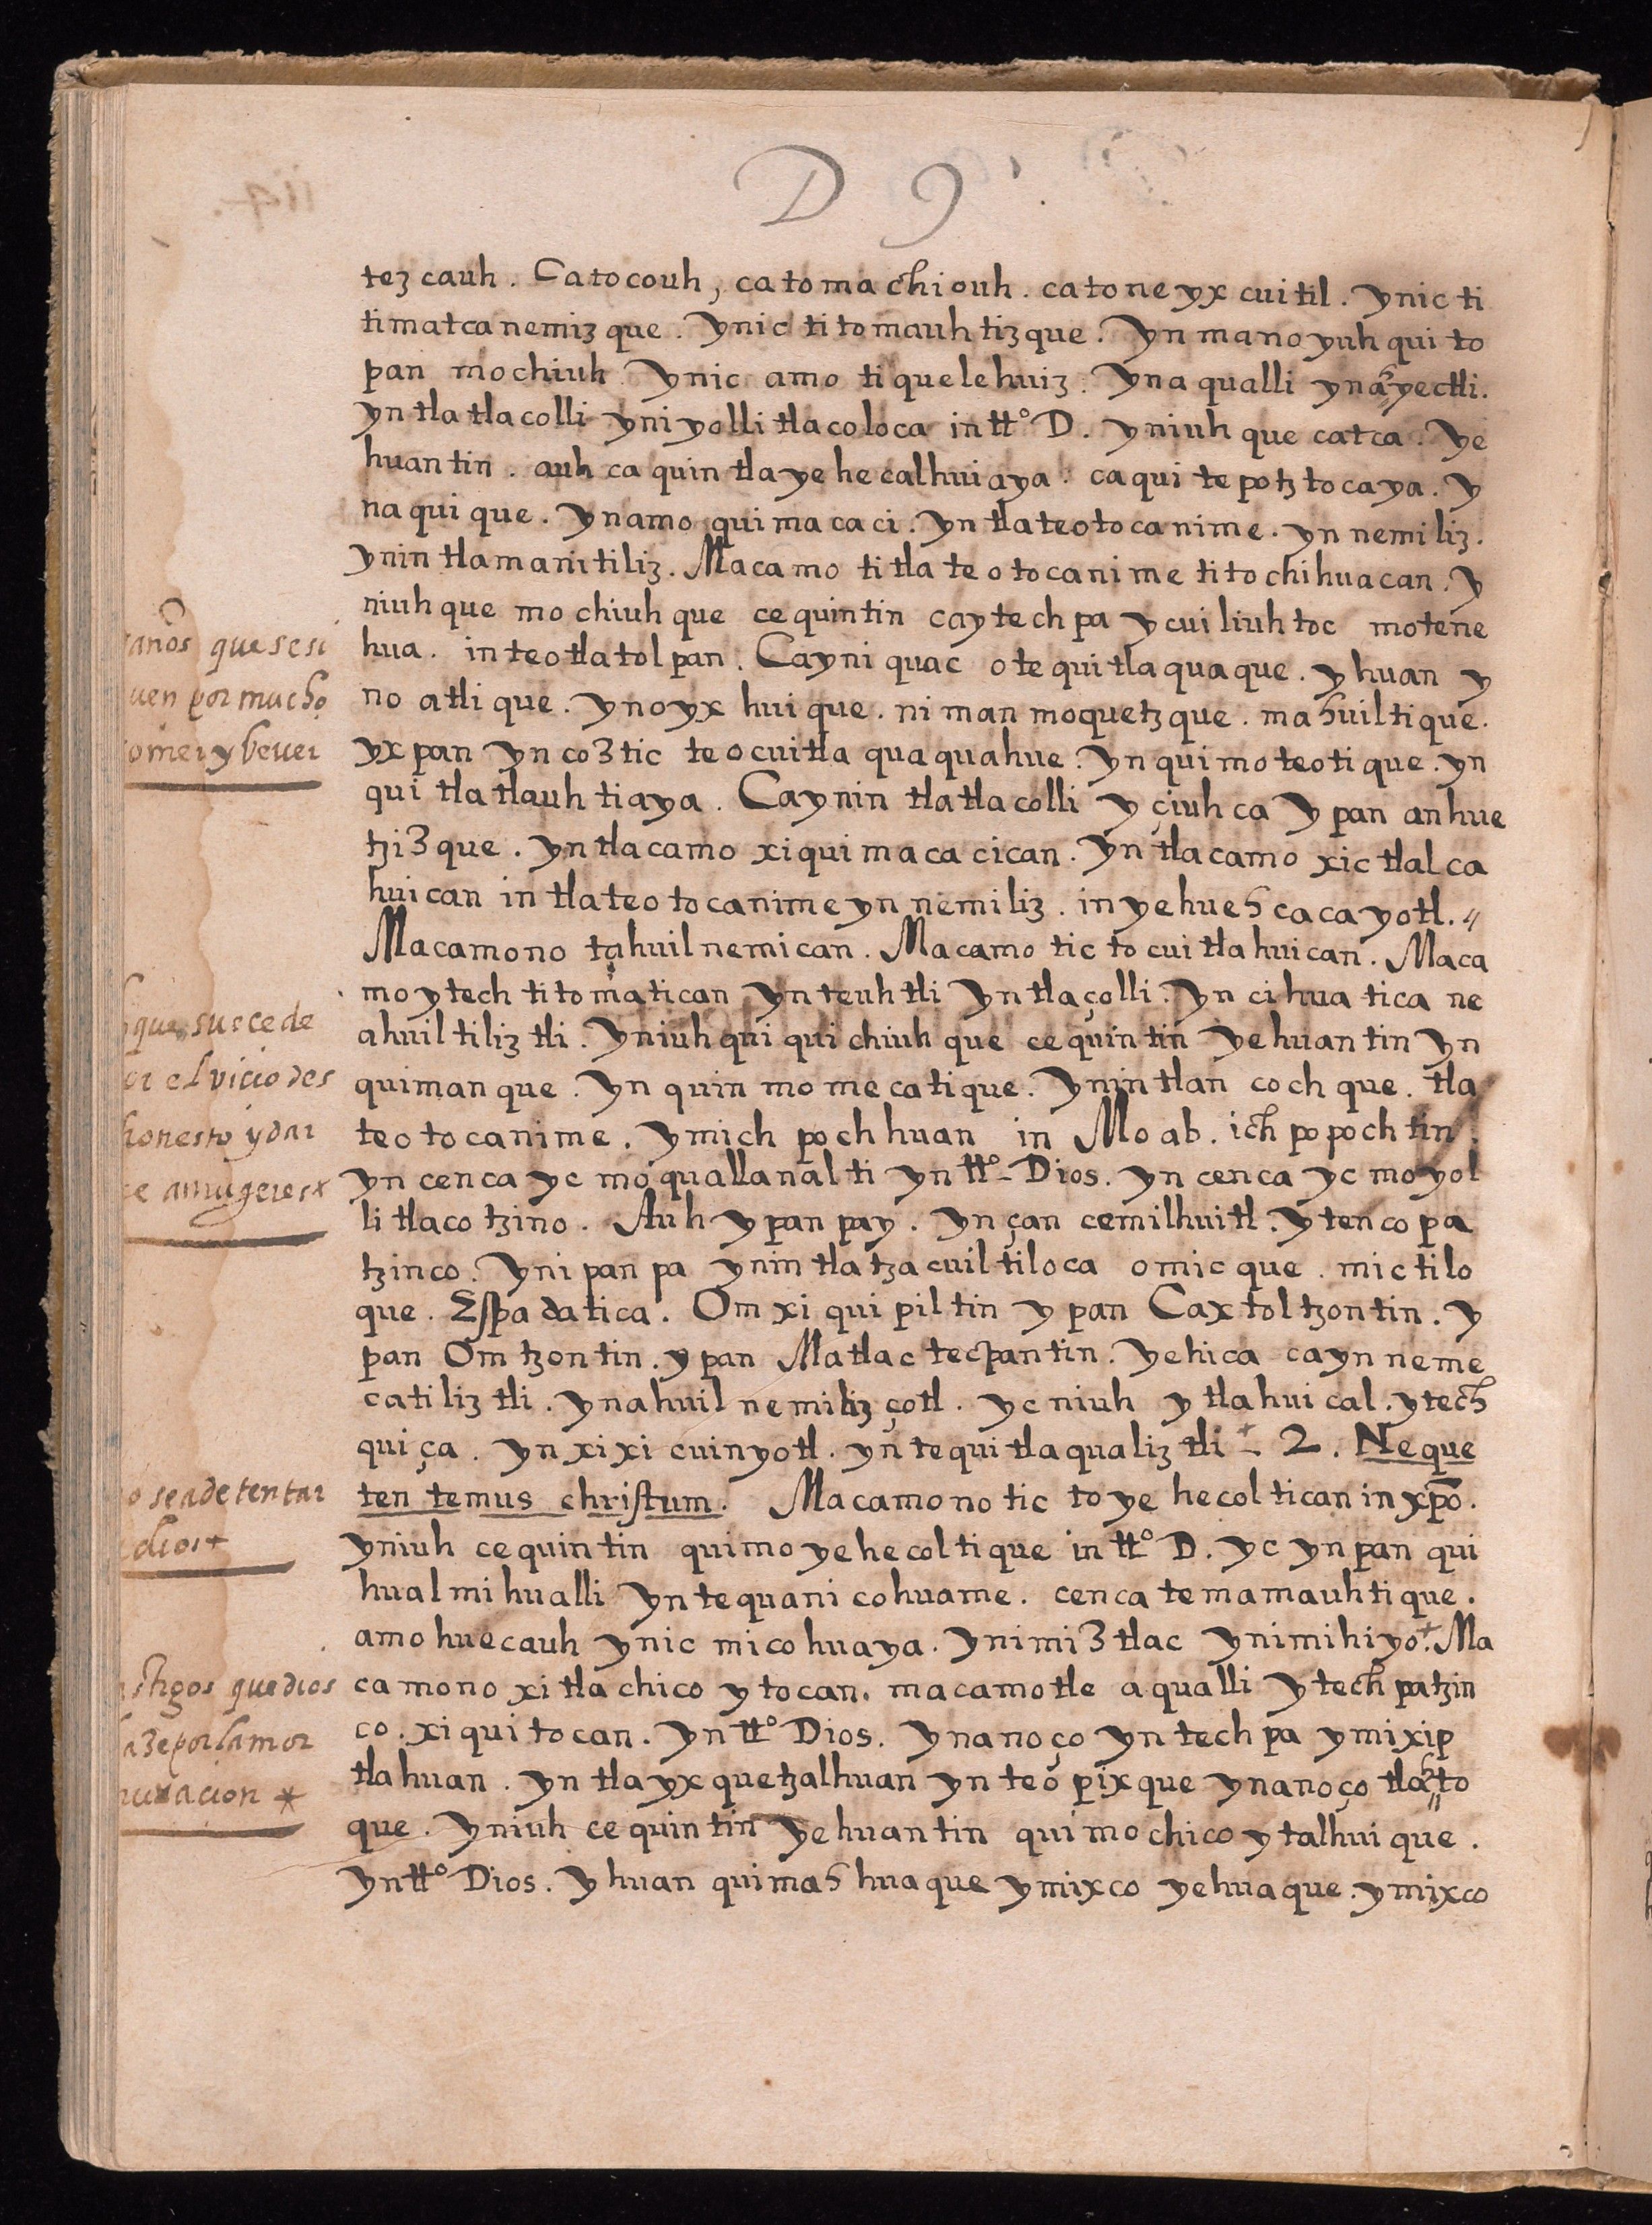 D 9
tez cauh. Ca to couh, ca to ma chi ouh. ca to ne yx cui til. ynic ti
ti mat ca nemiz que. ynic ti to mauh tiz que. yn ma no yuh qui to
pan mo chiuh. ynic amo ti que le huiz. yn a qualli yn ahyectli.
yn tla tla colli yn i yolli tla co lo ca in tt⁰ D. yniuh que cat ca. ye
huan tin. auh ca quin tla ye he calhui aya. ca qui te potz to ca ya. y
na qui que. yn amo qui ma ca ci. yn tla teo to ca ni me. yn nemi liz.
ynin tla mani tiliz. Maca mo ti tla te o to ca ni me ti to chi hua can. y
niuh que mo chiuh que ce quin tin cay tech pa y cui liuh toc mo tene
hua. in teo tla tol pan. Cayni quac o te qui tla qua que. y huan y
no a tli que. yn o yx hui que. ni man mo quetz que. mahuil ti que.
yx pan yn coztic teo cui tla qua qua hue. yn qui mo teo ti que. yn
qui tla tlauh ti aya. Cay nin tla tla colli y çiuh ca y pan an hue
tziz que. yn tla camo xi qui ma ca ci can. yn tla camo xic tlal ca
hui can in tla teo to ca ni me yn nemi liz. in ye hueh ca ca yotl.
Maca mo no tahuil nemi can. Maca mo tic to cui tla hui can. Maca
mo y tech ti to mati can yn teuh tli yn tla çolli. yn ci hua ti ca ne
a huil ti liz tli. yniuh qui qui chiuh que ce quin tin ye huan tin yn
qui man que. yn quin mo me ca ti que. ynin tlan coch que. tla
teo to ca ni me. ymich poch huan in Mo ab. ich po poch tin.
yn cen ca yc mo qualla nal ti yn tt⁰ Dios. yn cen ca yc mo yol
li tla co tzino. Auh y pan pay. yn çan cemilhuitl. y ten co pa
tzinco. yni pan pa ynin tla tza cuil ti lo ca omic que. mic ti lo
que. Espa da ti ca. Om xi qui pil tin y pan Cax tol tzon tin. y
pan Om tzon tin. y pan Matlac tecpan tin. ye hica cayn neme
ca ti liz tli. yn ahuil nemiliz çotl. yc niuh y tla hui cal. y tech
qui ça. yn xi xi cuin yotl. yn te qui tla qua liz tli + 2. Ne que
ten te mus christum. Maca mo no tic to ye he col ti can in xp̄o.
yniuh ce quin tin qui mo ye he col ti que in tt⁰ D. yc yn pan qui
hual mi hualli yn te qua ni co hua me. cen ca te ma mauh ti que.
amo hue cauh ynic mi co hua ya. yn i miztlac yn i mihi yo+. Ma
ca mo no xi tla chi co y to can. ma ca mo tle a qualli y tech pa tzin
co. xi qui to can. yn tt⁰ Dios. yn a no ço yn tech pa y mi xip
tla huan. yn tla yx quetzalhuan yn teo pix que yn a no ço tlahto
que. yniuh ce quin tin ye huan tin qui mo chi co y talhui que.
yn tt⁰ Dios. y huan qui mah hua que y mix co ye hua que. y mix co
que se si
por mucho
y bever
que succede
el vicio des
y dar
a mugeres+
sea de tentar
dios+
que dios
por la mor